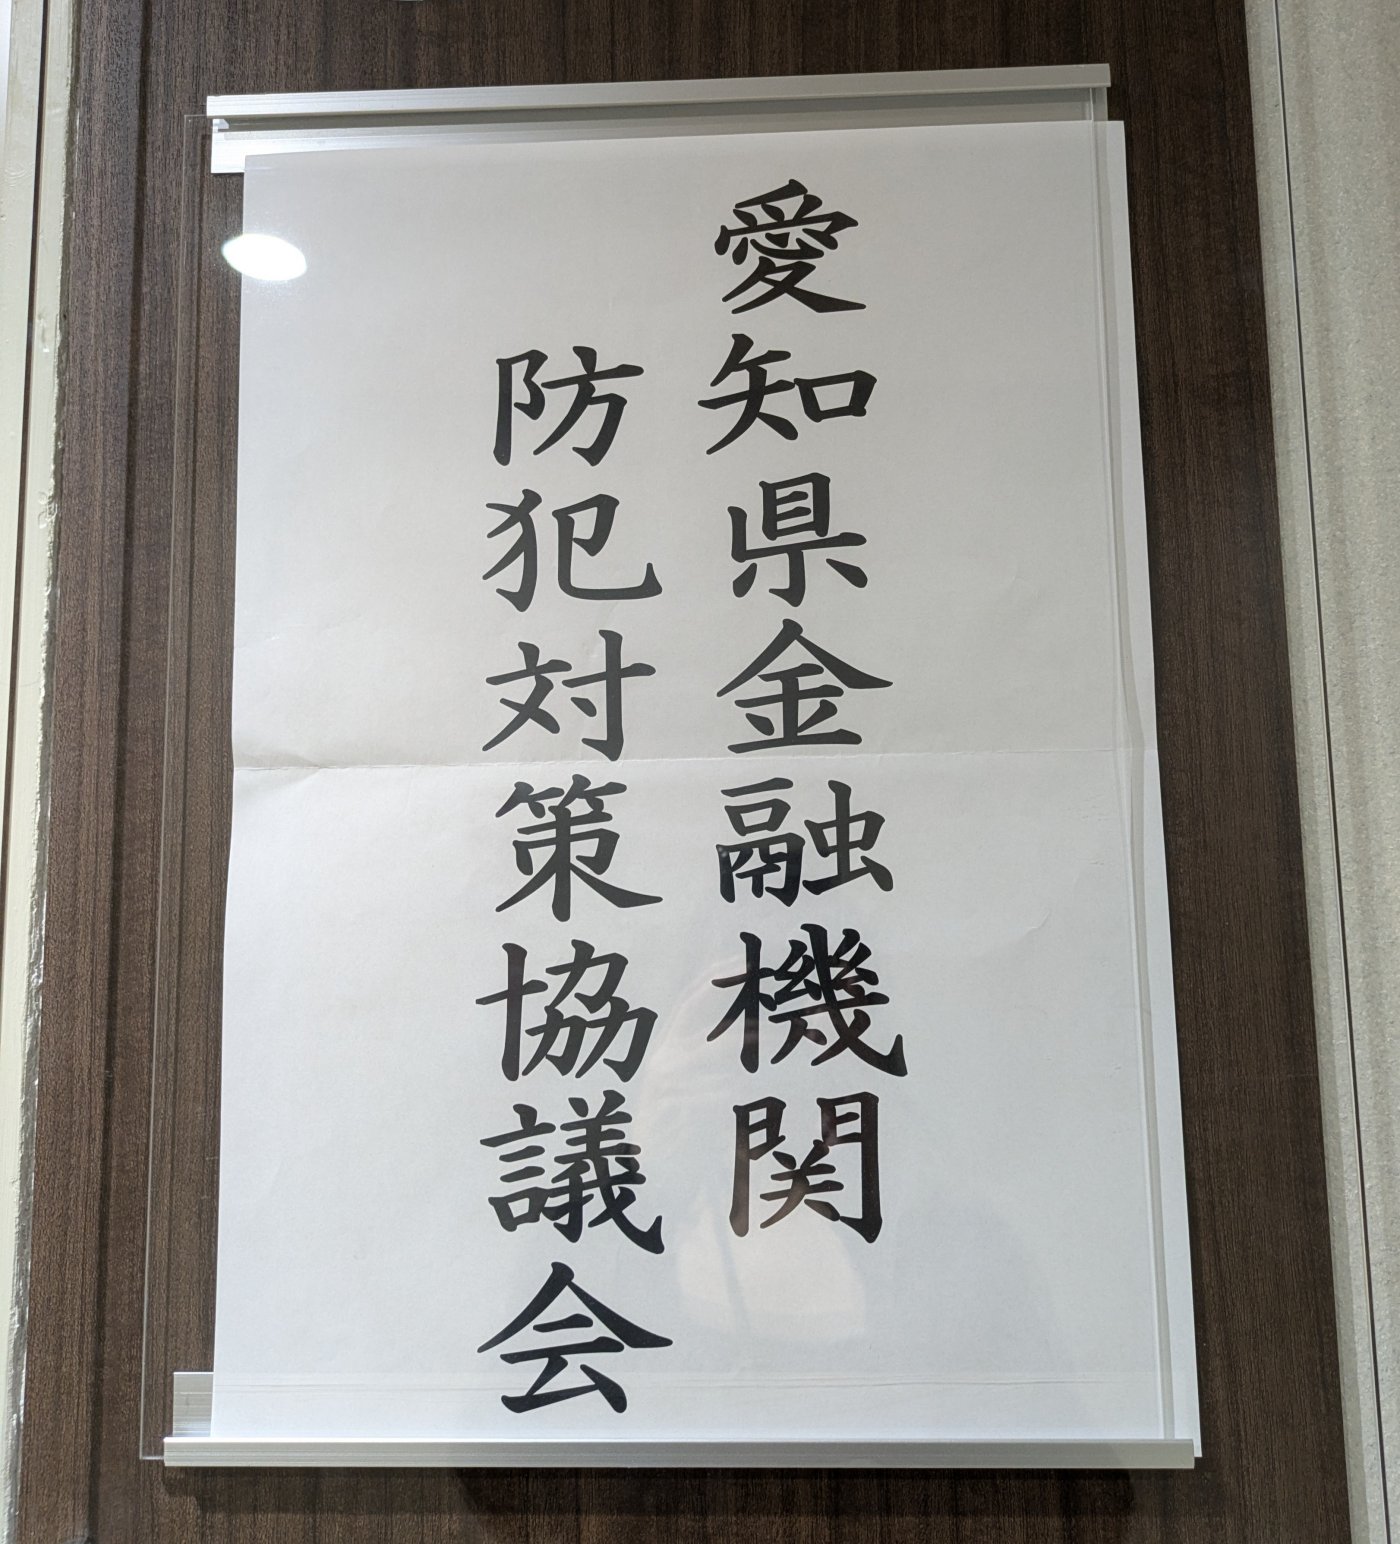 愛知県金融機関
防犯対策協議会